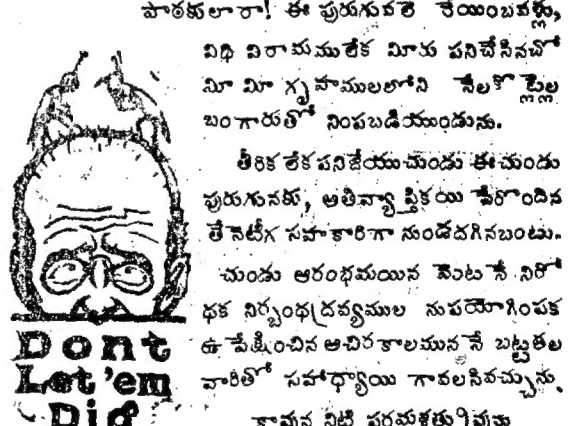 పాఠకులారా! ఈ పురుగువలె రేయింబవళ్లు,
విధి విరామములేక మీరు పనిచేసినచో
మీ మీ గృహములలోని నేలకొట్లెల్ల
బంగారుతో నింపబడియుండును.
తీరిక లేక పనిజేయుచుండు ఈ చుండు
పురుగునకు, అతివ్యాప్తికయి పేరొందిన
తేనెటీగ సహకారిగా నుండదగినబంటు.
చుండు ఆరంభమయిన వెంటనే నిరో
ధక నిర్బంధద్రవ్యముల నుపయోగింపక
ఉపేక్షించిన అచిరకాలముననే బట్టతల
వారితో సహాధ్యాయి గావలసివచ్చును.
కావున వీటి పరమశత్రువును
Dont
Let'em
Dig